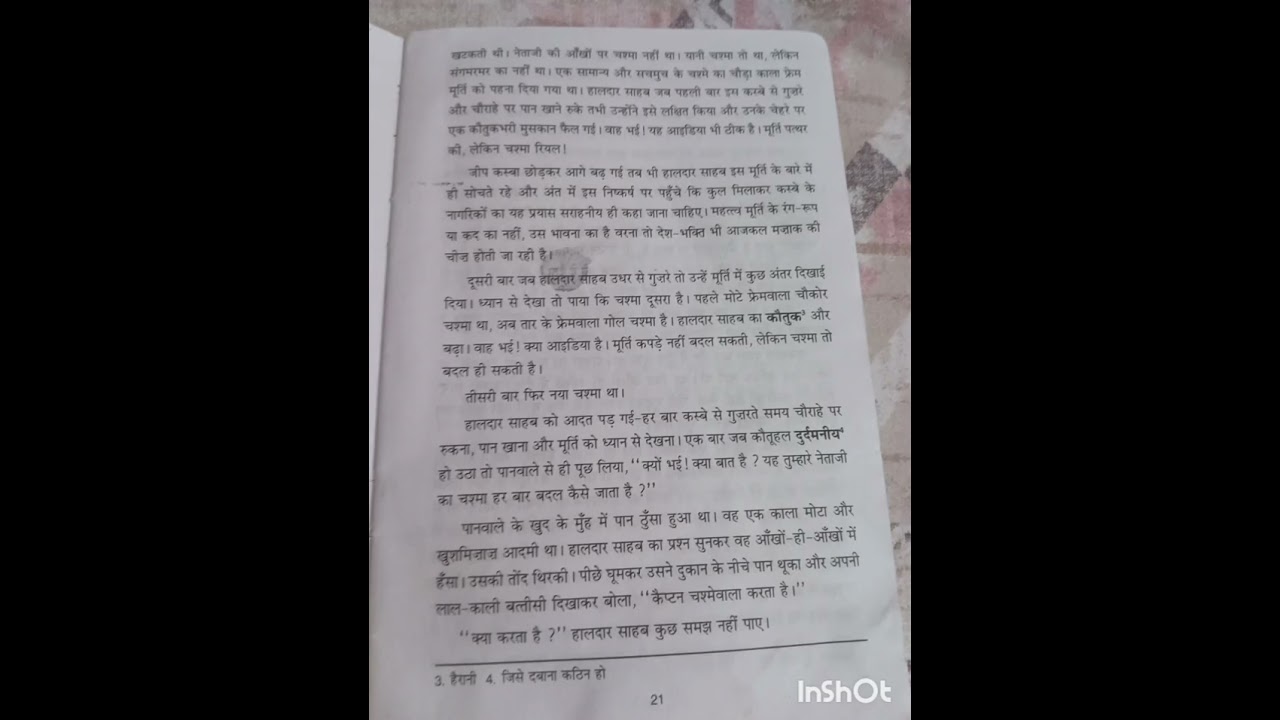 खटकती थी। नेताजी की आँखों पर चश्मा नहीं था। यानी चश्मा तो था, लेकिन
संगमरमर का नहीं था। एक सामान्य और सचमुच के चश्मे का चौड़ा काला फ्रेम
मूर्ति को पहना दिया गया था। हालदार साहब जब पहली बार इस कस्बे से गुज़रे
और चौराहे पर पान खाने रुके तभी उन्होंने इसे लक्षित किया और उनके चेहरे पर
एक कौतुकभरी मुसकान फैल गई। वाह भई! यह आइडिया भी ठीक है। मूर्ति पत्थर
की, लेकिन चश्मा रियल!
जीप कस्बा छोड़कर आगे बढ़ गई तब भी हालदार साहब इस मूर्ति के बारे में
ही सोचते रहे और अंत में इस निष्कर्ष पर पहुँचे कि कुल मिलाकर कस्बे के
नागरिकों का यह प्रयास सराहनीय ही कहा जाना चाहिए। महत्त्व मूर्ति के रंग-रूप
या कद का नहीं, उस भावना का है वरना तो देश-भक्ति भी आजकल मज़ाक की
चीज़ होती जा रही है।
दूसरी बार जब हालदार साहब उधर से गुज़रे तो उन्हें मूर्ति में कुछ अंतर दिखाई
दिया। ध्यान से देखा तो पाया कि चश्मा दूसरा है। पहले मोटे फ्रेमवाला चौकोर
चश्मा था, अब तार के फ्रेमवाला गोल चश्मा है। हालदार साहब का कौतुक³ और
बढ़ा। वाह भई! क्या आइडिया है। मूर्ति कपड़े नहीं बदल सकती, लेकिन चश्मा तो
बदल ही सकती है।
तीसरी बार फिर नया चश्मा था।
हालदार साहब को आदत पड़ गई-हर बार कस्बे से गुज़रते समय चौराहे पर
रुकना, पान खाना और मूर्ति को ध्यान से देखना। एक बार जब कौतूहल दुर्दमनीय⁴
हो उठा तो पानवाले से ही पूछ लिया, "क्यों भई! क्या बात है ? यह तुम्हारे नेताजी
का चश्मा हर बार बदल कैसे जाता है ?"
पानवाले के खुद के मुँह में पान ठुँसा हुआ था। वह एक काला मोटा और
खुशमिज़ाज आदमी था। हालदार साहब का प्रश्न सुनकर वह आँखों-ही-आँखों में
हँसा। उसकी तोंद थिरकी। पीछे घूमकर उसने दुकान के नीचे पान थूका और अपनी
लाल-काली बत्तीसी दिखाकर बोला, "कैप्टन चश्मेवाला करता है।"
"क्या करता है ?" हालदार साहब कुछ समझ नहीं पाए।
3. हैरानी 4. जिसे दबाना कठिन हो
21
InShOt